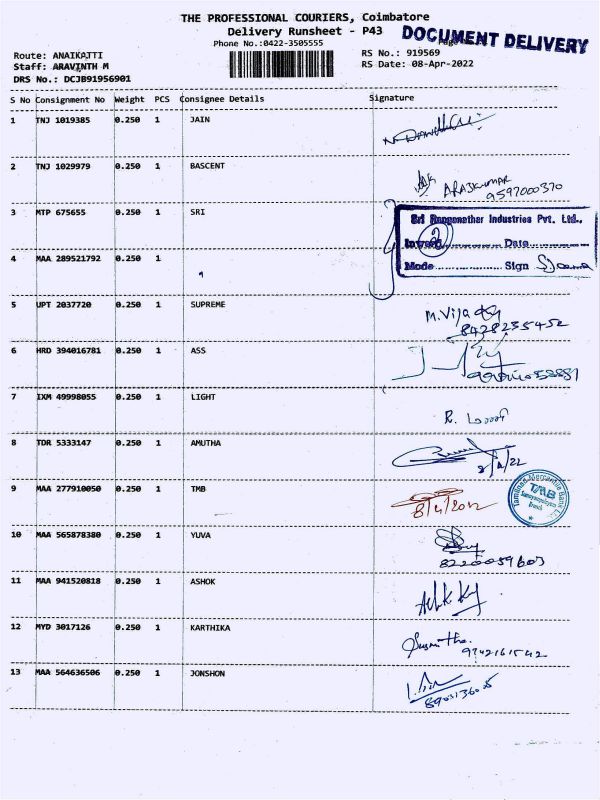 THE PROFESSIONAL COURIERS, Coimbatore
Delivery Runsheet - P43
DOCUMENT DELIVERY
Phone No.:0422-3505555
Route: ANAIKATTI
RS No.: 919569
Staff: ARAVINTH M
RS Date: 08-Apr-2022
DRS No.: DCJB91956901
S No Consignment No Weight PCS Consignee Details Signature
1 TNJ 1019385 0.250 1 JAIN
2 TNJ 1029979 0.250 1 BASCENT
ARAJKUMAR
9597000370
3 MTP 675655 0.250 1 SRI
Sri Ranganathar Industries Pvt. Ltd.,
Inward Date
2
4 MAA 289521792 0.250 1
Mode Sign
5 UPT 2037720 0.250 1 SUPREME
M.Vijay
8428235452
6 HRD 394016781 0.250 1 ASS
7 IXM 49998055 0.250 1 LIGHT
R.
8 TDR 5333147 0.250 1 AMUTHA
8/4/22
9 MAA 277910050 0.250 1 TMB
8/4/2022
Tamilnad Mercantile Bank Ltd
TMB
Branch
10 MAA 565878380 0.250 1 YUVA
8220059603
11 MAA 941520818 0.250 1 ASHOK
12 MYD 3017126 0.250 1 KARTHIKA
Susmitha.
9742161542
13 MAA 564636506 0.250 1 JONSHON
8903136025